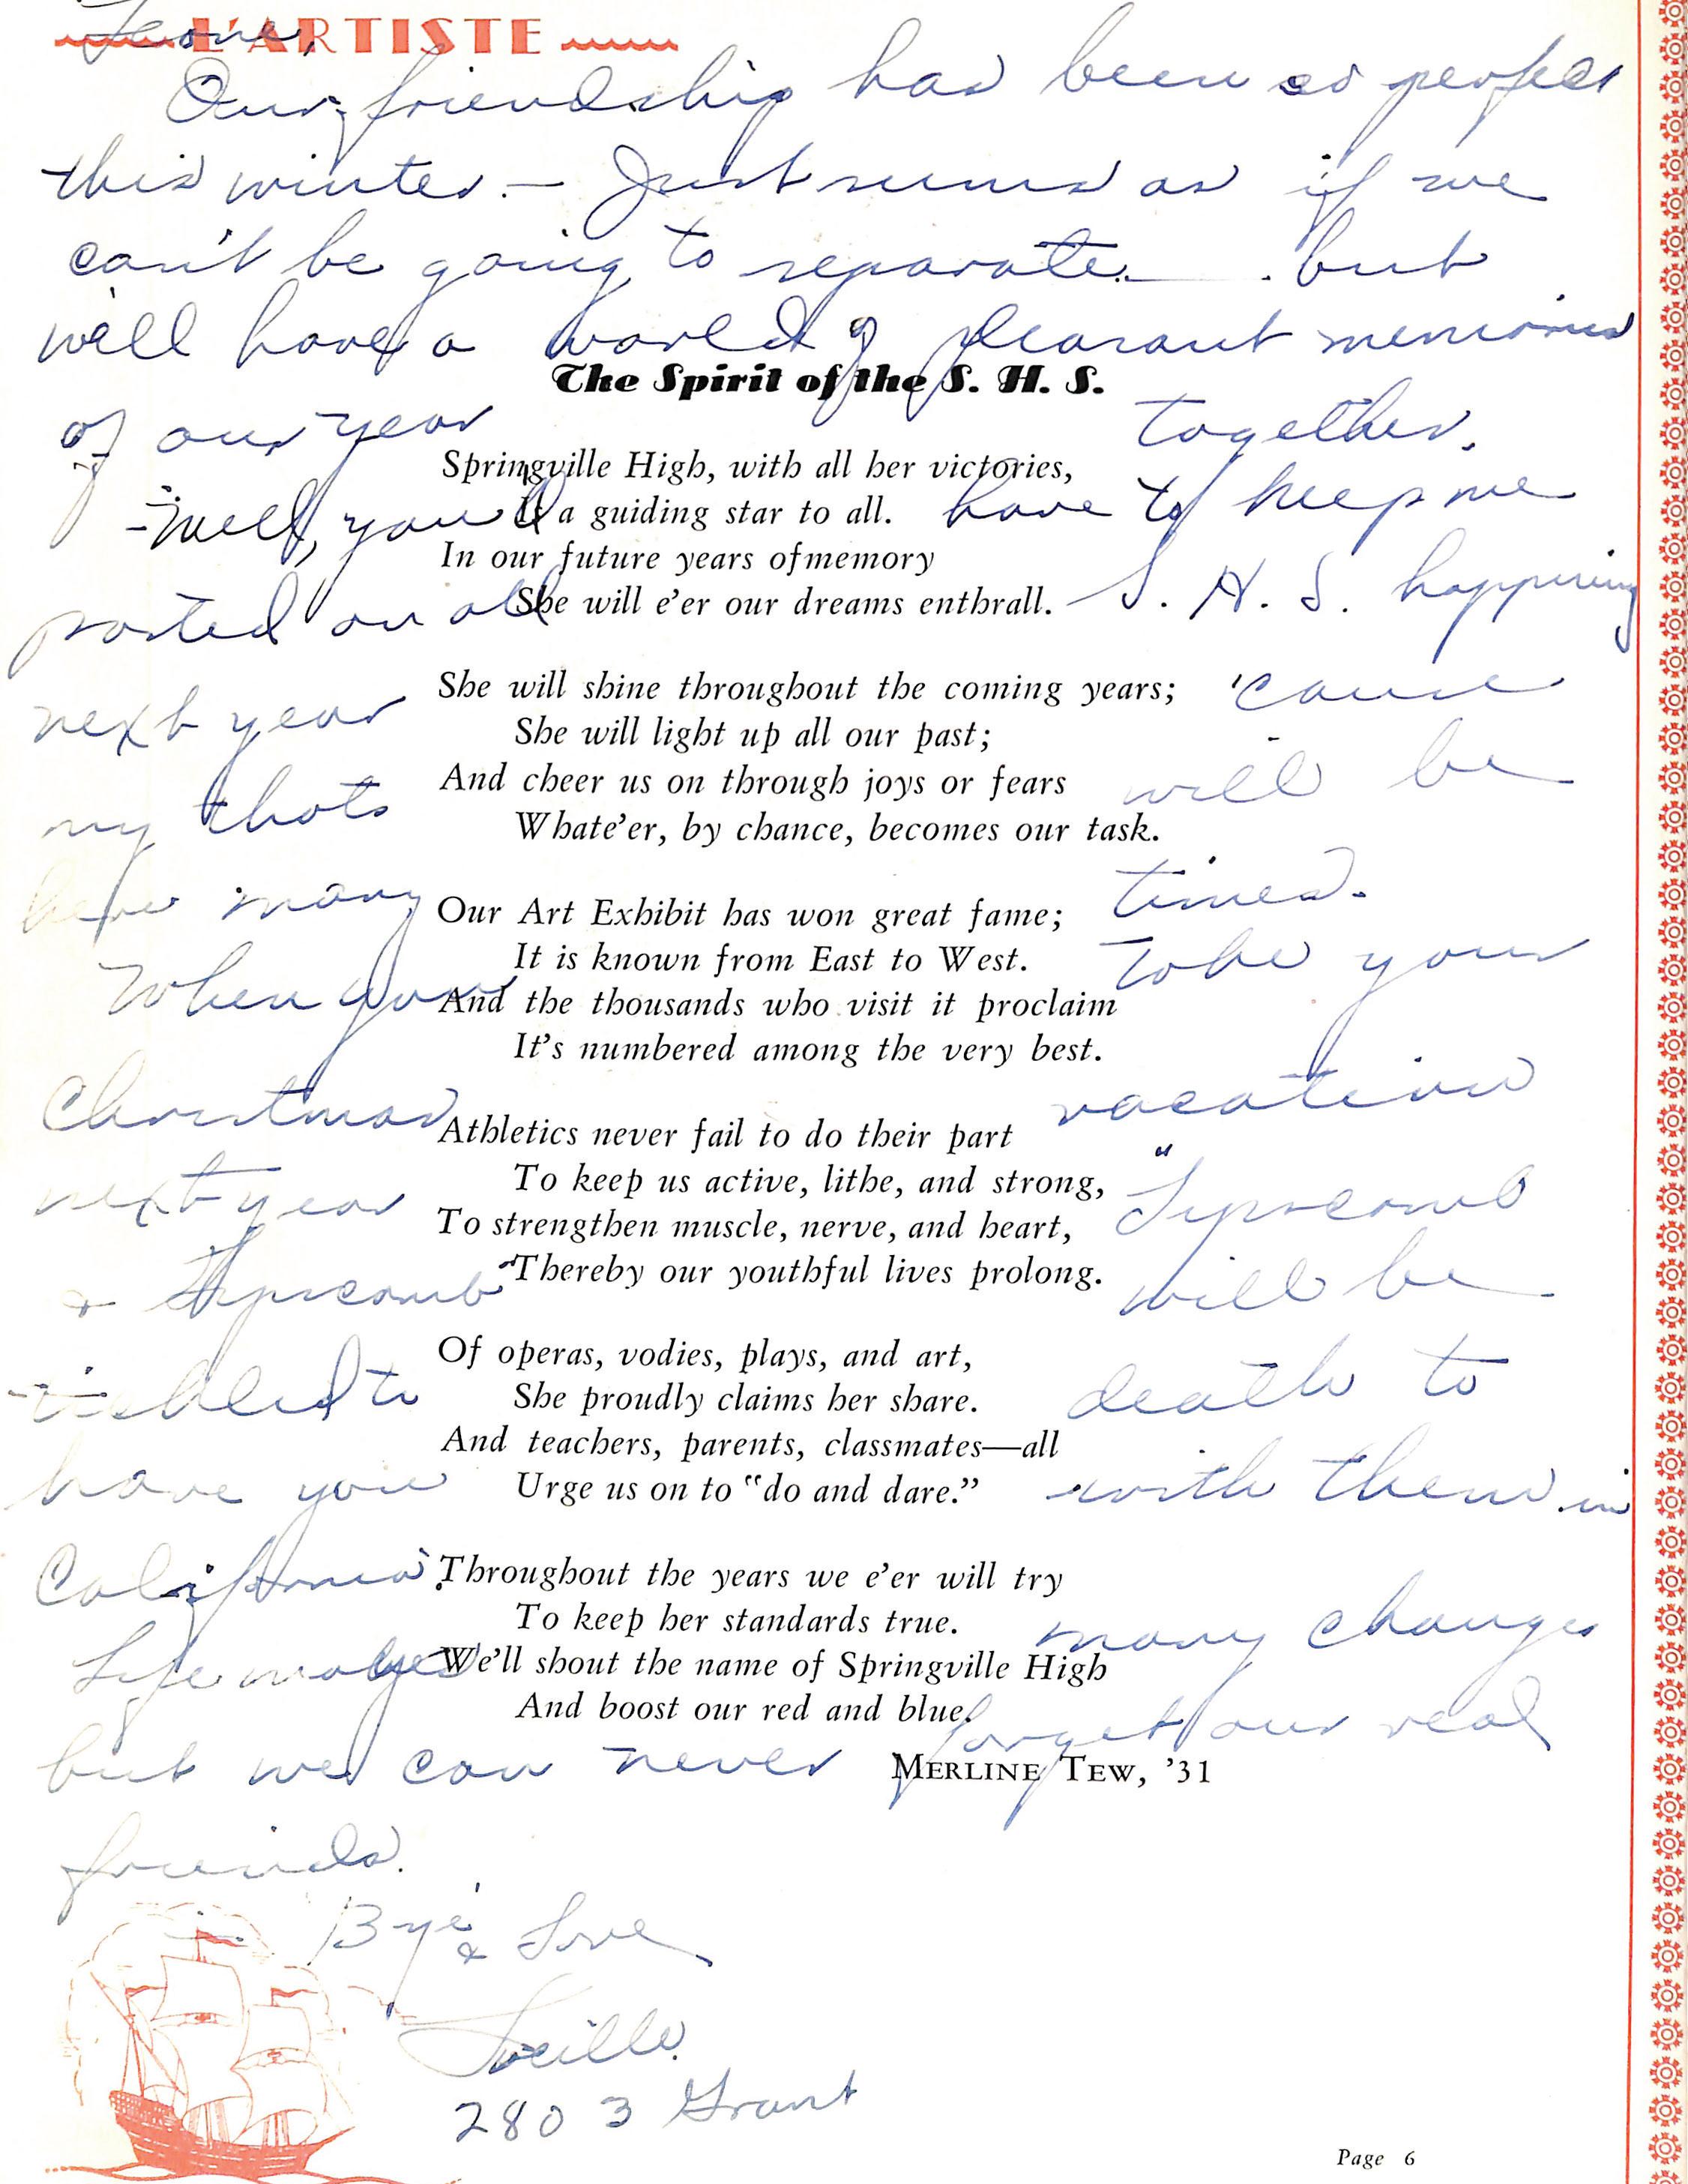 L'ARTISTE
Leone,
Our friendship has been so perfect
this winter. — Just seems as if we
can't be going to separate. but
we'll have a world of pleasant memories
of our year together.
The Spirit of the S. H. S.
Springville High, with all her victories,
Is a guiding star to all.
In our future years ofmemory
She will e'er our dreams enthrall.
She will shine throughout the coming years;
She will light up all our past;
And cheer us on through joys or fears
Whate'er, by chance, becomes our task.
Our Art Exhibit has won great fame;
It is known from East to West.
And the thousands who visit it proclaim
It's numbered among the very best.
Athletics never fail to do their part
To keep us active, lithe, and strong,
To strengthen muscle, nerve, and heart,
Thereby our youthful lives prolong.
Of operas, vodies, plays, and art,
She proudly claims her share.
And teachers, parents, classmates—all
Urge us on to "do and dare."
Throughout the years we e'er will try
To keep her standards true.
We'll shout the name of Springville High
And boost our red and blue.
MERLINE TEW, '31
-Well, you'll have to keep me
posted on all S. H. S. happening
next year 'cause
my thots will be
here many times.
When you take your
Christmas vacation
next year "Lipscomb
& Lipscomb" will be
tickled to death to
have you with them in
California.
Life makes many changes
but we can never forget our real
friends.
Bye & Love
Lucille
2803 Grant
Page 6